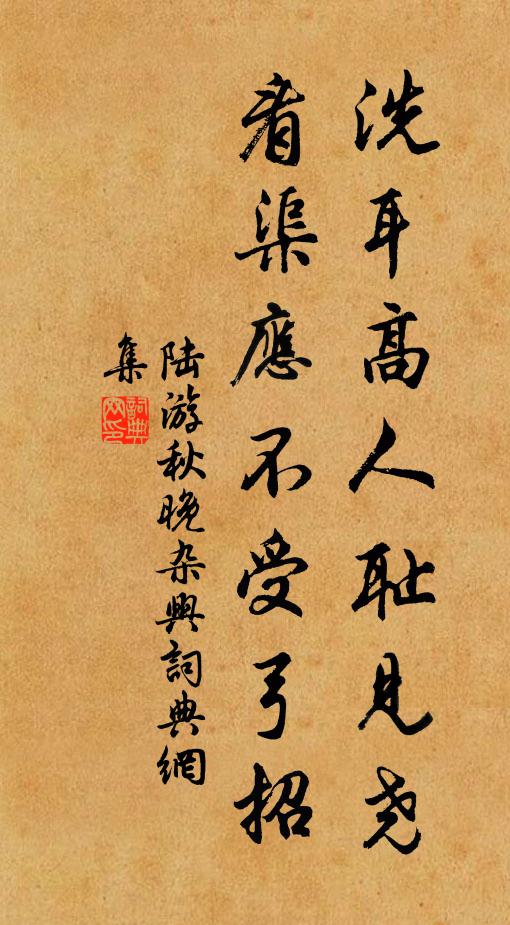 洗耳高人耻見尧
看渠應不受弓招
陆游秋晚杂興詞典網
集
詞典网印